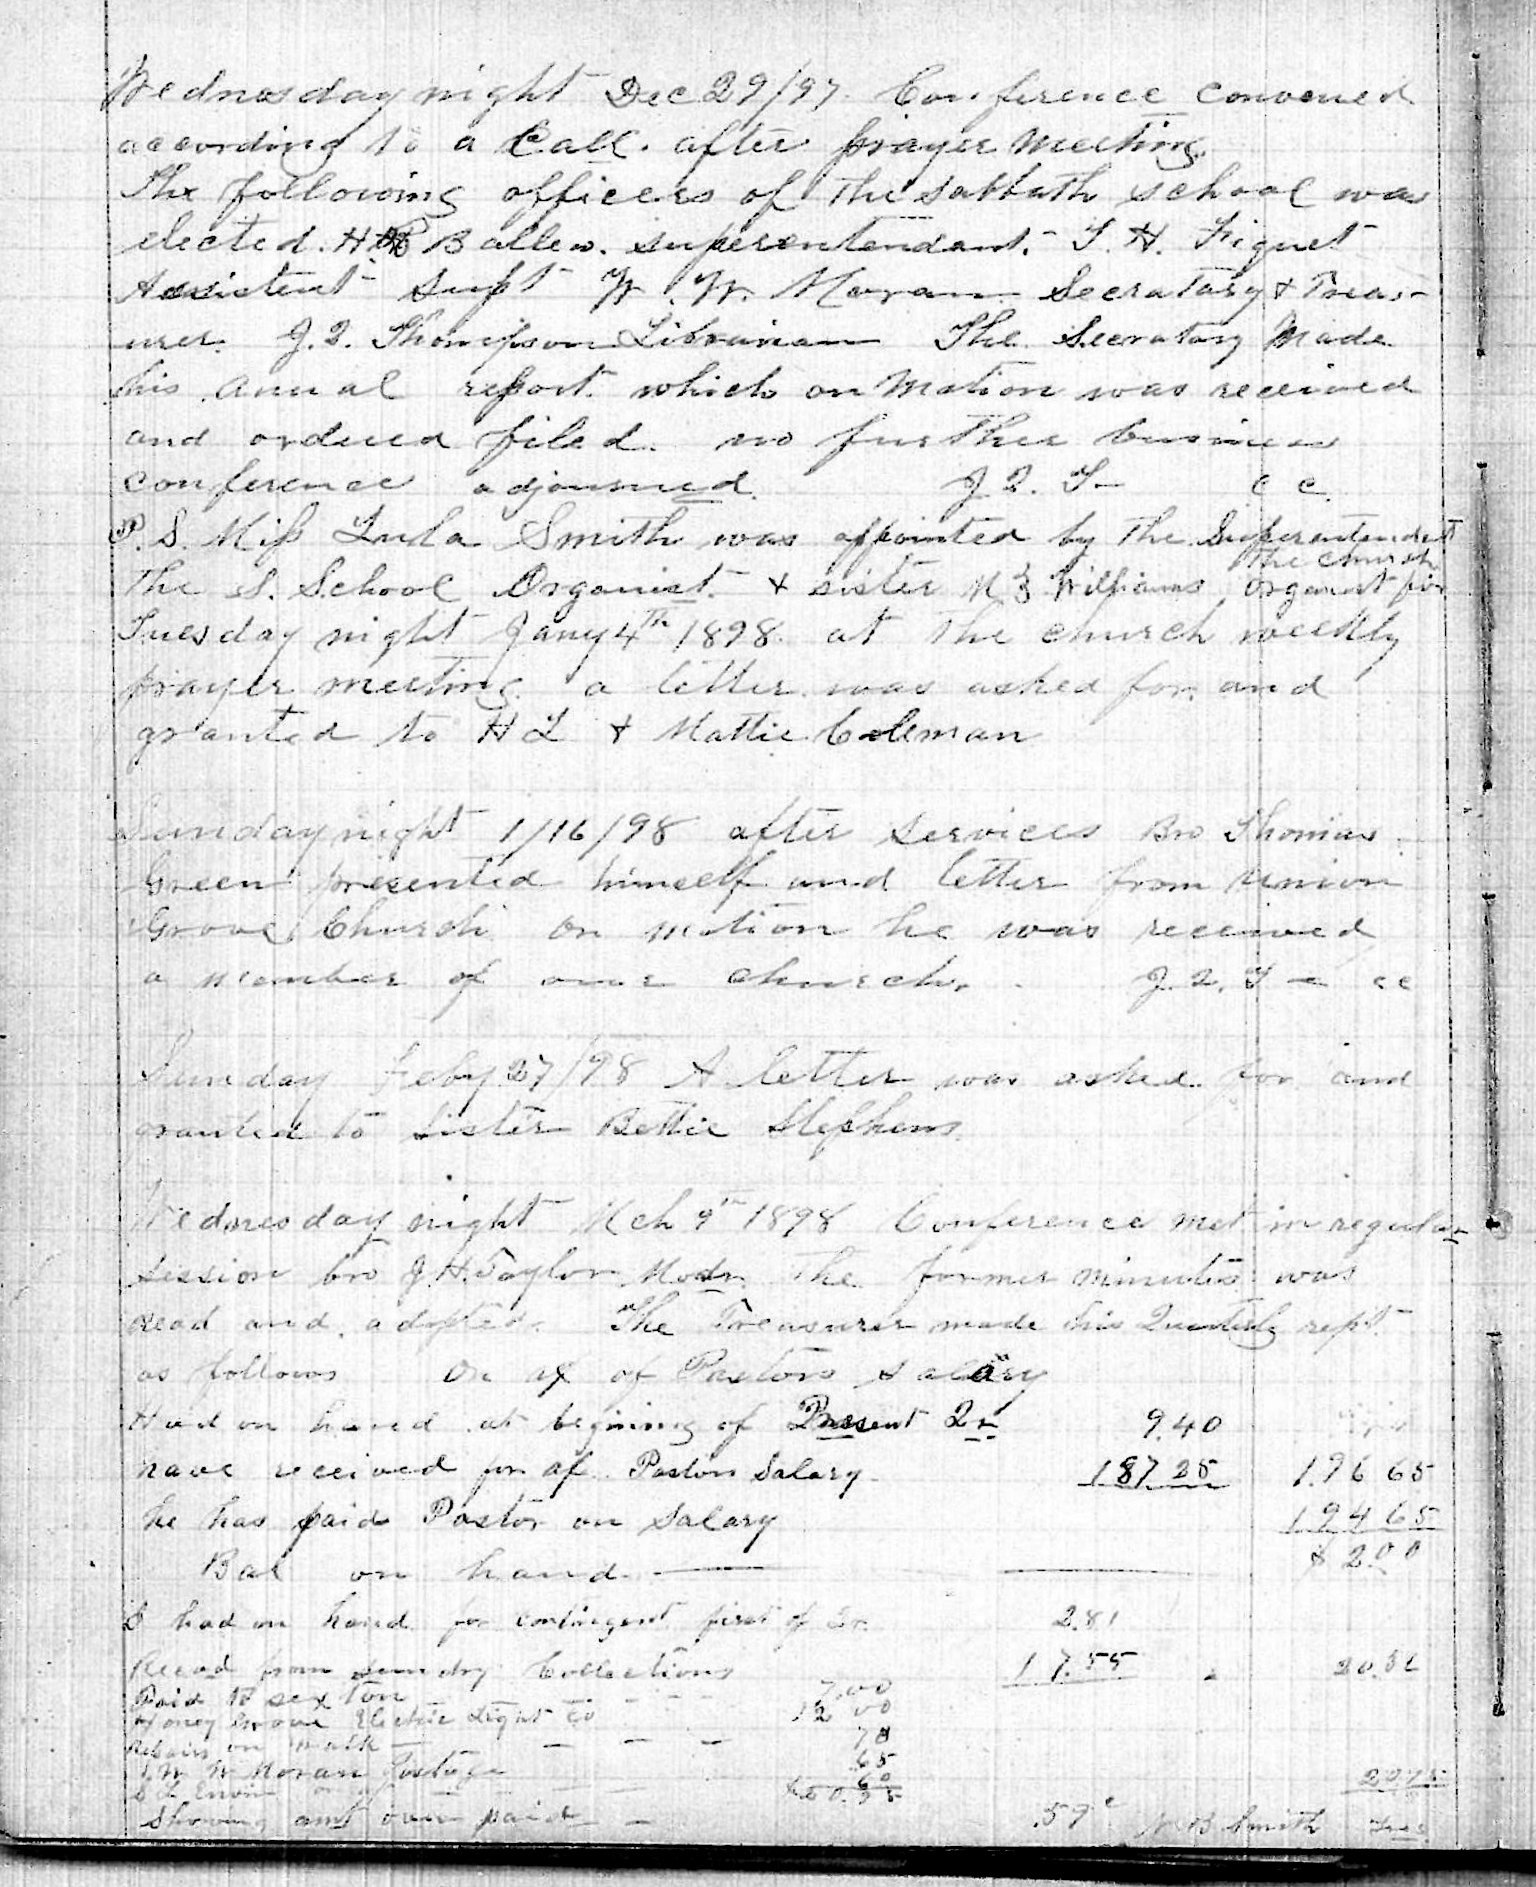 Wednesday night Dec 29/97. Conference convened
according to a Call. after prayer meeting.
The following officers of the Sabbath School was
elected. H Ballew. superentendant. T. H. Fiquet
Assistent Supt W. W. Moran Secratary & Treas-
urer. J. Q. Thompson Librarian The Secratary Made
his anual report. which on Motion was received
and ordered filed. no further business
conference adjourned. J Q. T- C C.
P. S. Miss Lula Smith was appointed by the Superentendent
the church
the S. School Organist. & sister M Williams organist for
Tuesday night Jany 4th 1898. at the church weekly
prayer meeting a letter was asked for and
granted to H L & Mattie Coleman
Sunday night 1/16/98 after services Bro Thomas
Green presented himself and letter from Union
Grove Church on motion he was received
a member of our church. J. Q. T- cc
Sunday Feby 27/98 A letter was asked for and
granted to sister Bettie Stephens.
Wednesday night Mch 9th 1898 Conference met in regular
session bro J. H. Taylor Modr. The former minutes was
read and adopted. The Treasurer made his Quarterly rept.
as follows On a/c of Pastors salary
Had on hand at begining of Present Qr. 9.40
have received for a/c Pastors Salary 187.25 196 65
he has paid Pastor on Salary 194 65
Bal on hand — $ 2.00
I had on hand for contingent first of Qr. 2.81
Recd from sundry Collections 17.55 20.36
Paid to sexton 7.00
Honey Grove Electric Light Co 12 00
Repairs on walk 70
W W Moran Postage .65
S L Erwin 60
20.95 20.95
Showing amt over paid .59c B Smith Tres